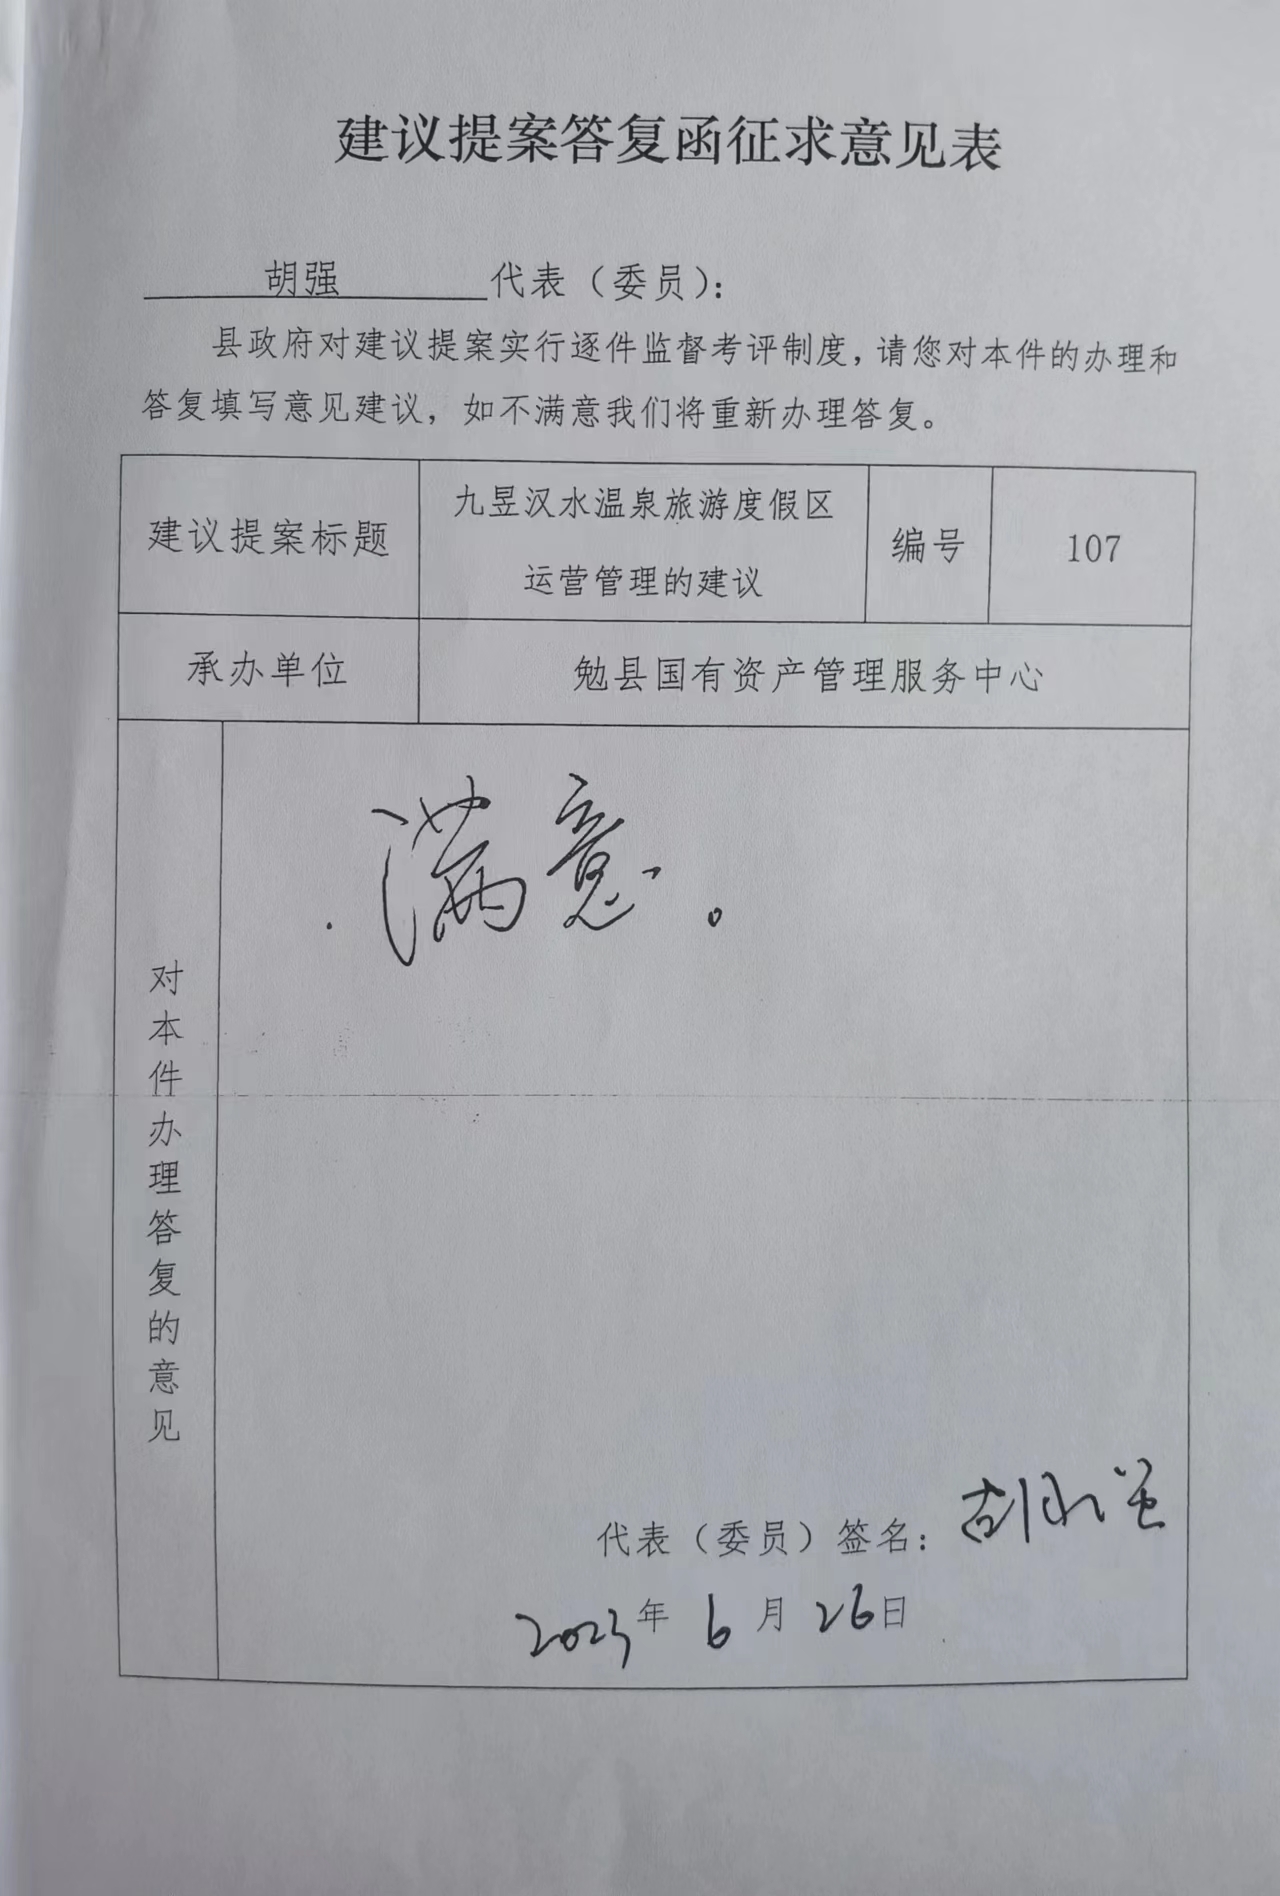 建议提案答复函征求意见表
胡强 代表（委员）：
县政府对建议提案实行逐件监督考评制度，请您对本件的办理和
答复填写意见建议，如不满意我们将重新办理答复。
建议提案标题
九昱汉水温泉旅游度假区
运营管理的建议
编号
107
承办单位
勉县国有资产管理服务中心
对本件办理答复的意见
满意。
代表（委员）签名：
2023年 6 月 26日